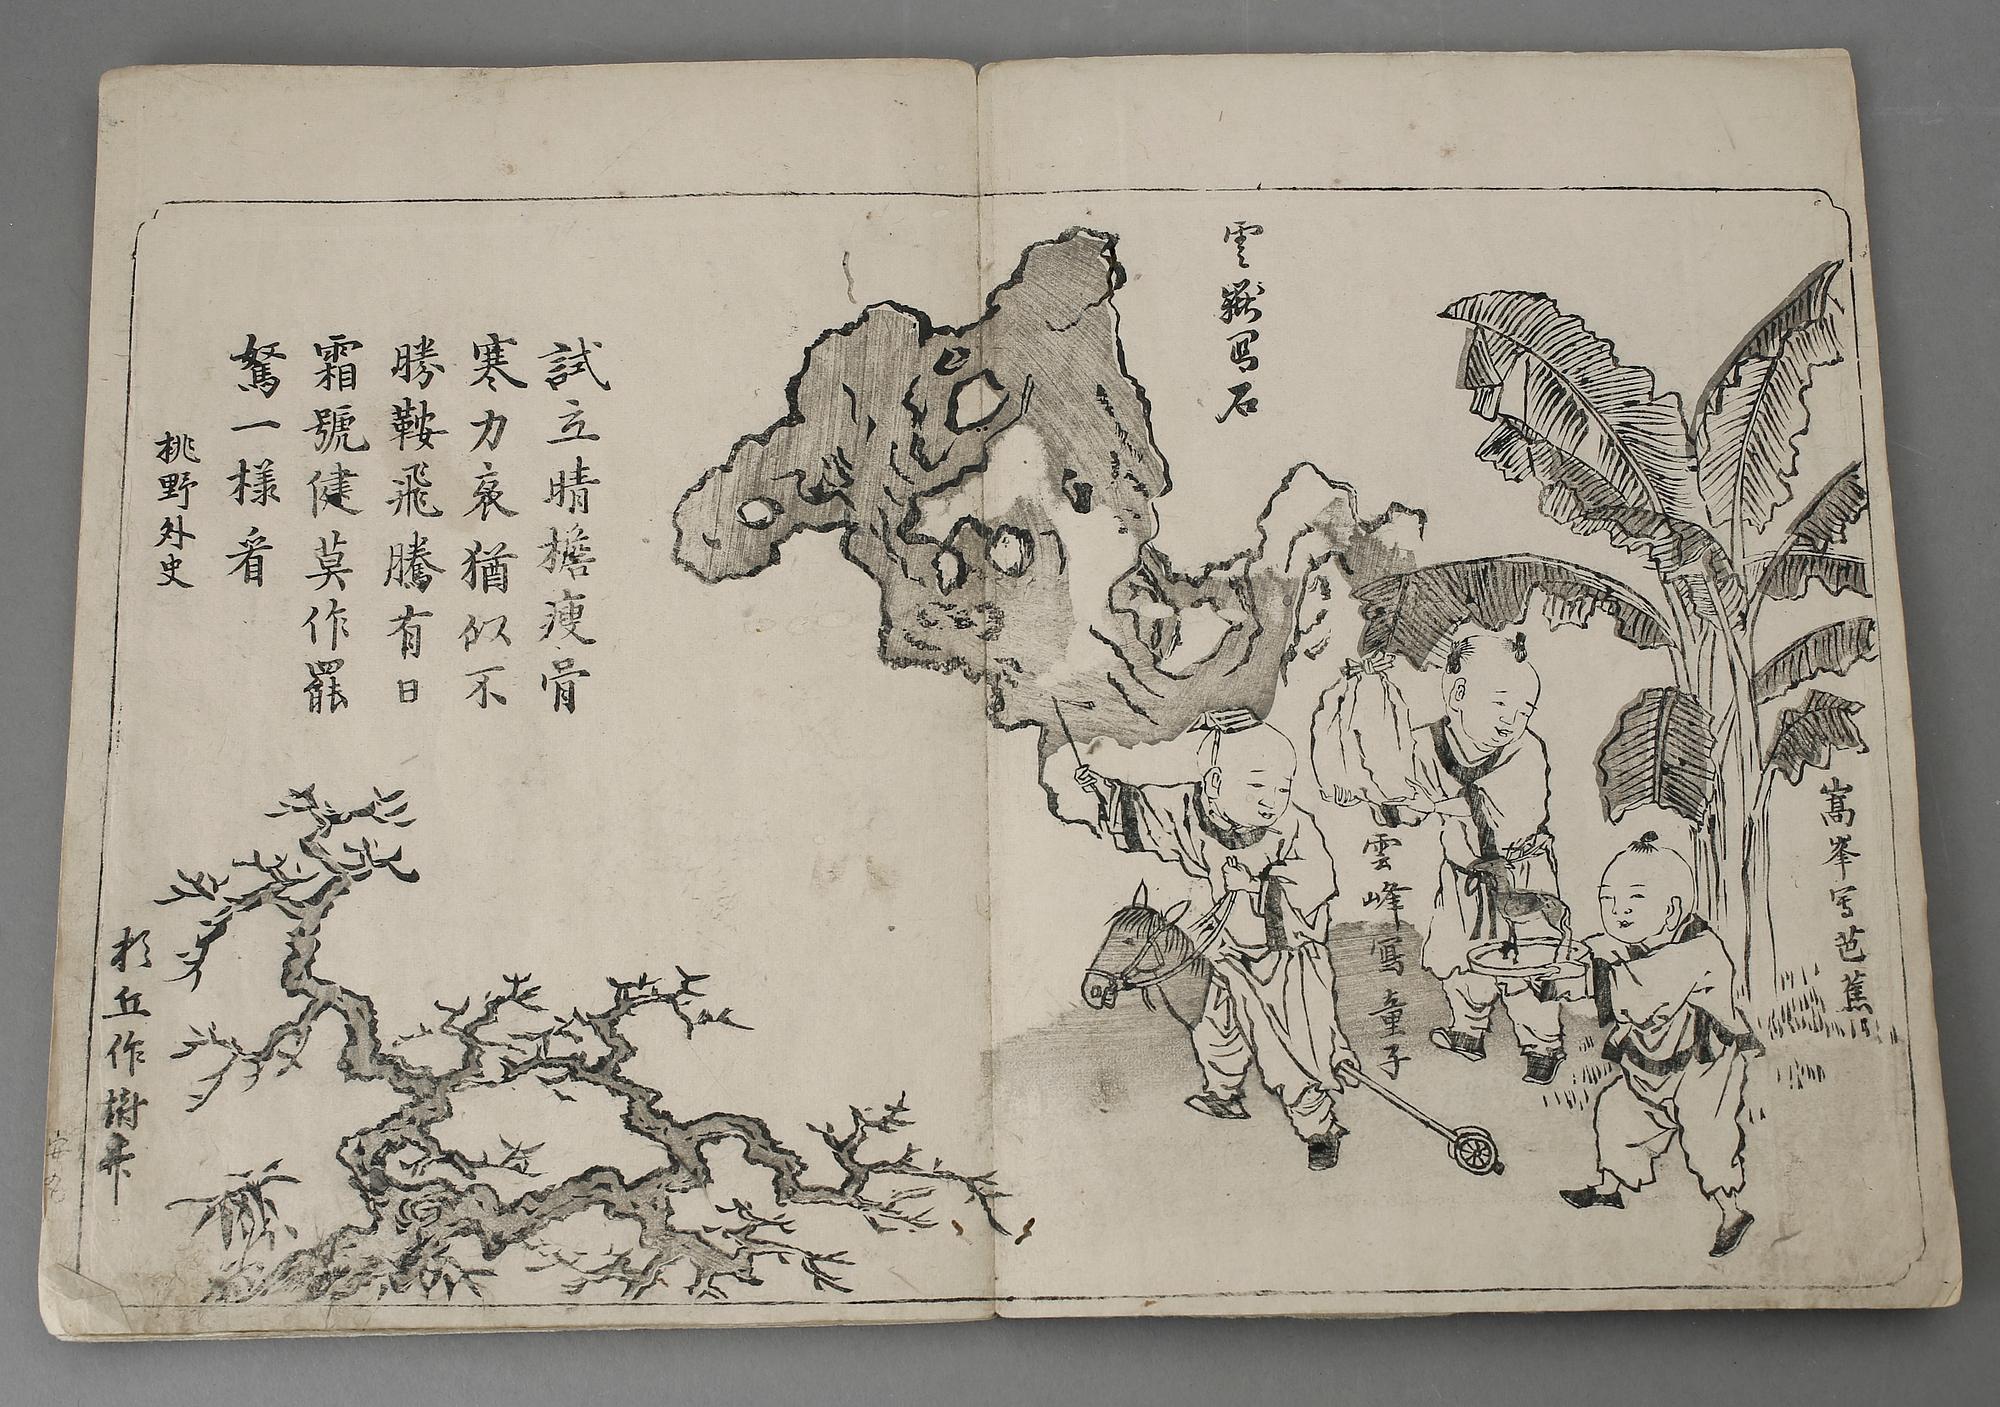 嵩峯写芭蕉
雲峰寫童子
雲嶽写石
試立晴檐瘦骨
寒力衰猶似不
勝鞍飛騰有日
霜號健莫作罷
駑一樣看
桃野外史
杉丘作樹并